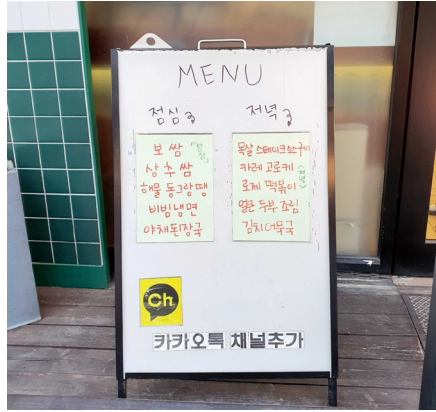 MENU
점심
보쌈
상추쌈
해물 동그랑땡
비빔냉면
야채된장국
저녁
목살 스테이크소스구이
카레 고로케
로제 떡볶이
얼큰 두부 조림
김치어묵국
Ch
카카오톡 채널추가